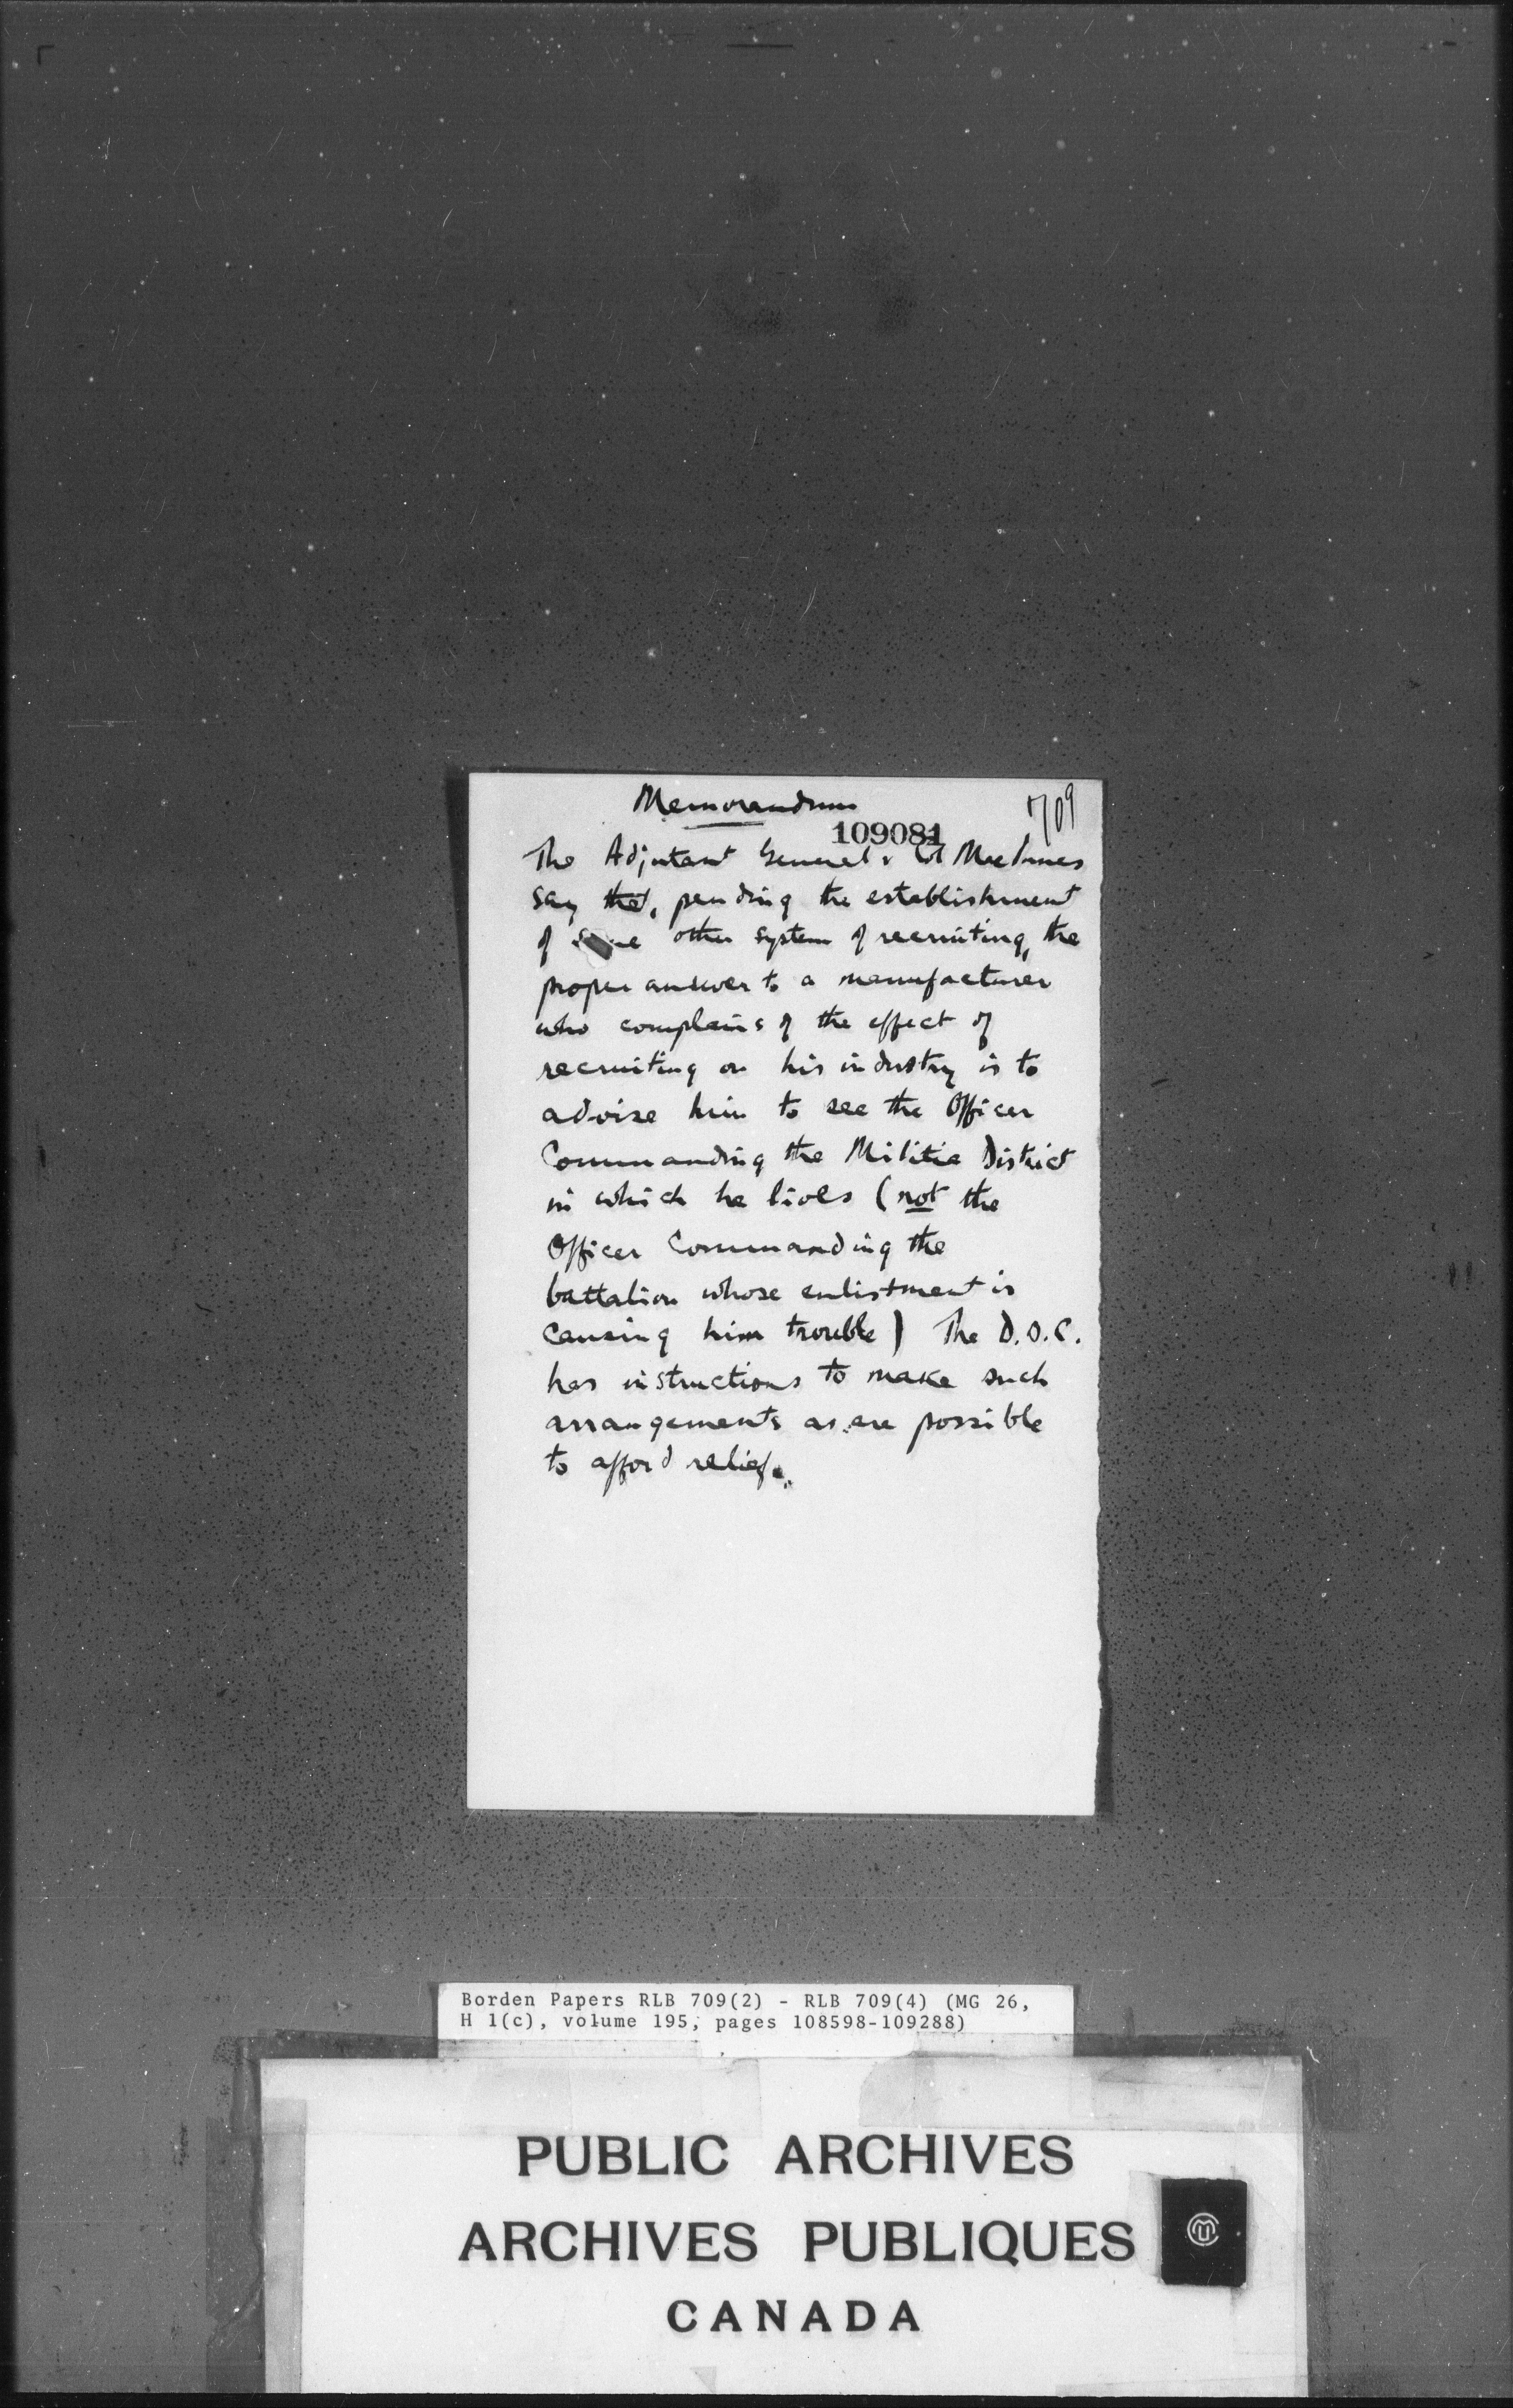 Memorandum
709
109081
The Adjutant General & Col MacInnes
say that, pending the establishment
of some other system of recruiting, the
proper answer to a manufacturer
who complains of the effect of
recruiting on his industry is to
advise him to see the Officer
Commanding the Militia District
in which he lives (not the
Officer Commanding the
battalion whose enlistment is
causing him trouble) The D.O.C.
has instructions to make such
arrangements as are possible
to afford relief.
Borden Papers RLB 709(2) - RLB 709(4) (MG 26,
H 1(c), volume 195, pages 108598-109288)
PUBLIC ARCHIVES
ARCHIVES PUBLIQUES
CANADA